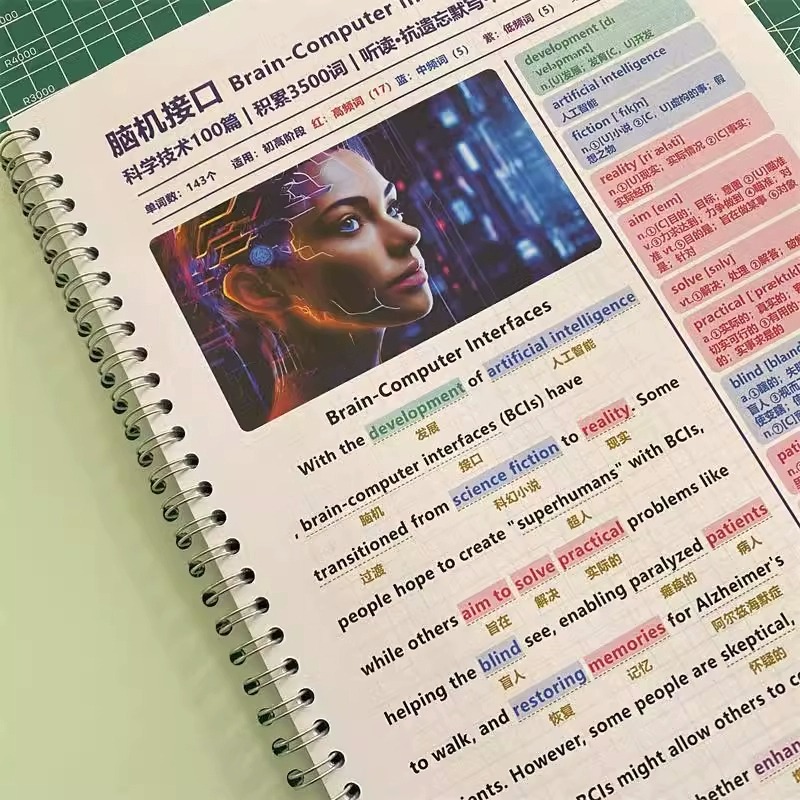 R4000
R3000
脑机接口 Brain-Computer In
科学技术100篇 | 积累3500词 | 听读·抗遗忘默写·
单词数：143个 适用：初高阶段 红：高频词（17） 蓝：中频词（5） 紫：低频词（5）
Brain-Computer Interfaces
With the development of artificial intelligence
发展 人工智能
, brain-computer interfaces (BCIs) have
脑机 接口
transitioned from science fiction to reality. Some
过渡 科幻小说 现实
people hope to create "superhumans" with BCIs,
超人
while others aim to solve practical problems like
旨在 解决 实际的
helping the blind see, enabling paralyzed patients
盲人 瘫痪的 病人
to walk, and restoring memories for Alzheimer's
恢复 记忆 阿尔兹海默症
ients. However, some people are skeptical,
怀疑的
BCIs might allow others to co
hether enhan
development [dɪ
ˈveləpmənt]
n.[U]发展；发育[C, U]开发
artificial intelligence
人工智能
fiction [ˈfɪkʃn]
n.①[U]小说 ②[C, U]虚构的事；假
想之物
reality [riˈæləti]
n.①[U]现实；实际情况 ②[C]事实；
实际经历
aim [eɪm]
n.①[C]目的；目标；意图 ②[U]瞄准
v.③力求达到；力争做到 ④瞄准；对
准 vt.⑤目的是；旨在做某事 ⑥对象
是；针对
solve [sɒlv]
vt.①解决；处理 ②解答；破
practical [ˈpræktɪk
a.①实际的；真实的；
切实可行的 ③有用的
的；实事求是的
blind [blaɪnd
a.①瞎的；失
盲人 ③视而
使变瞎；使
n.⑦[C]
patie